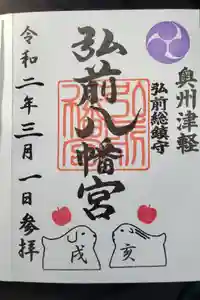 奥州津軽
弘前総鎮守
弘前八幡宮
令和二年三月一日参拝
亥
戌